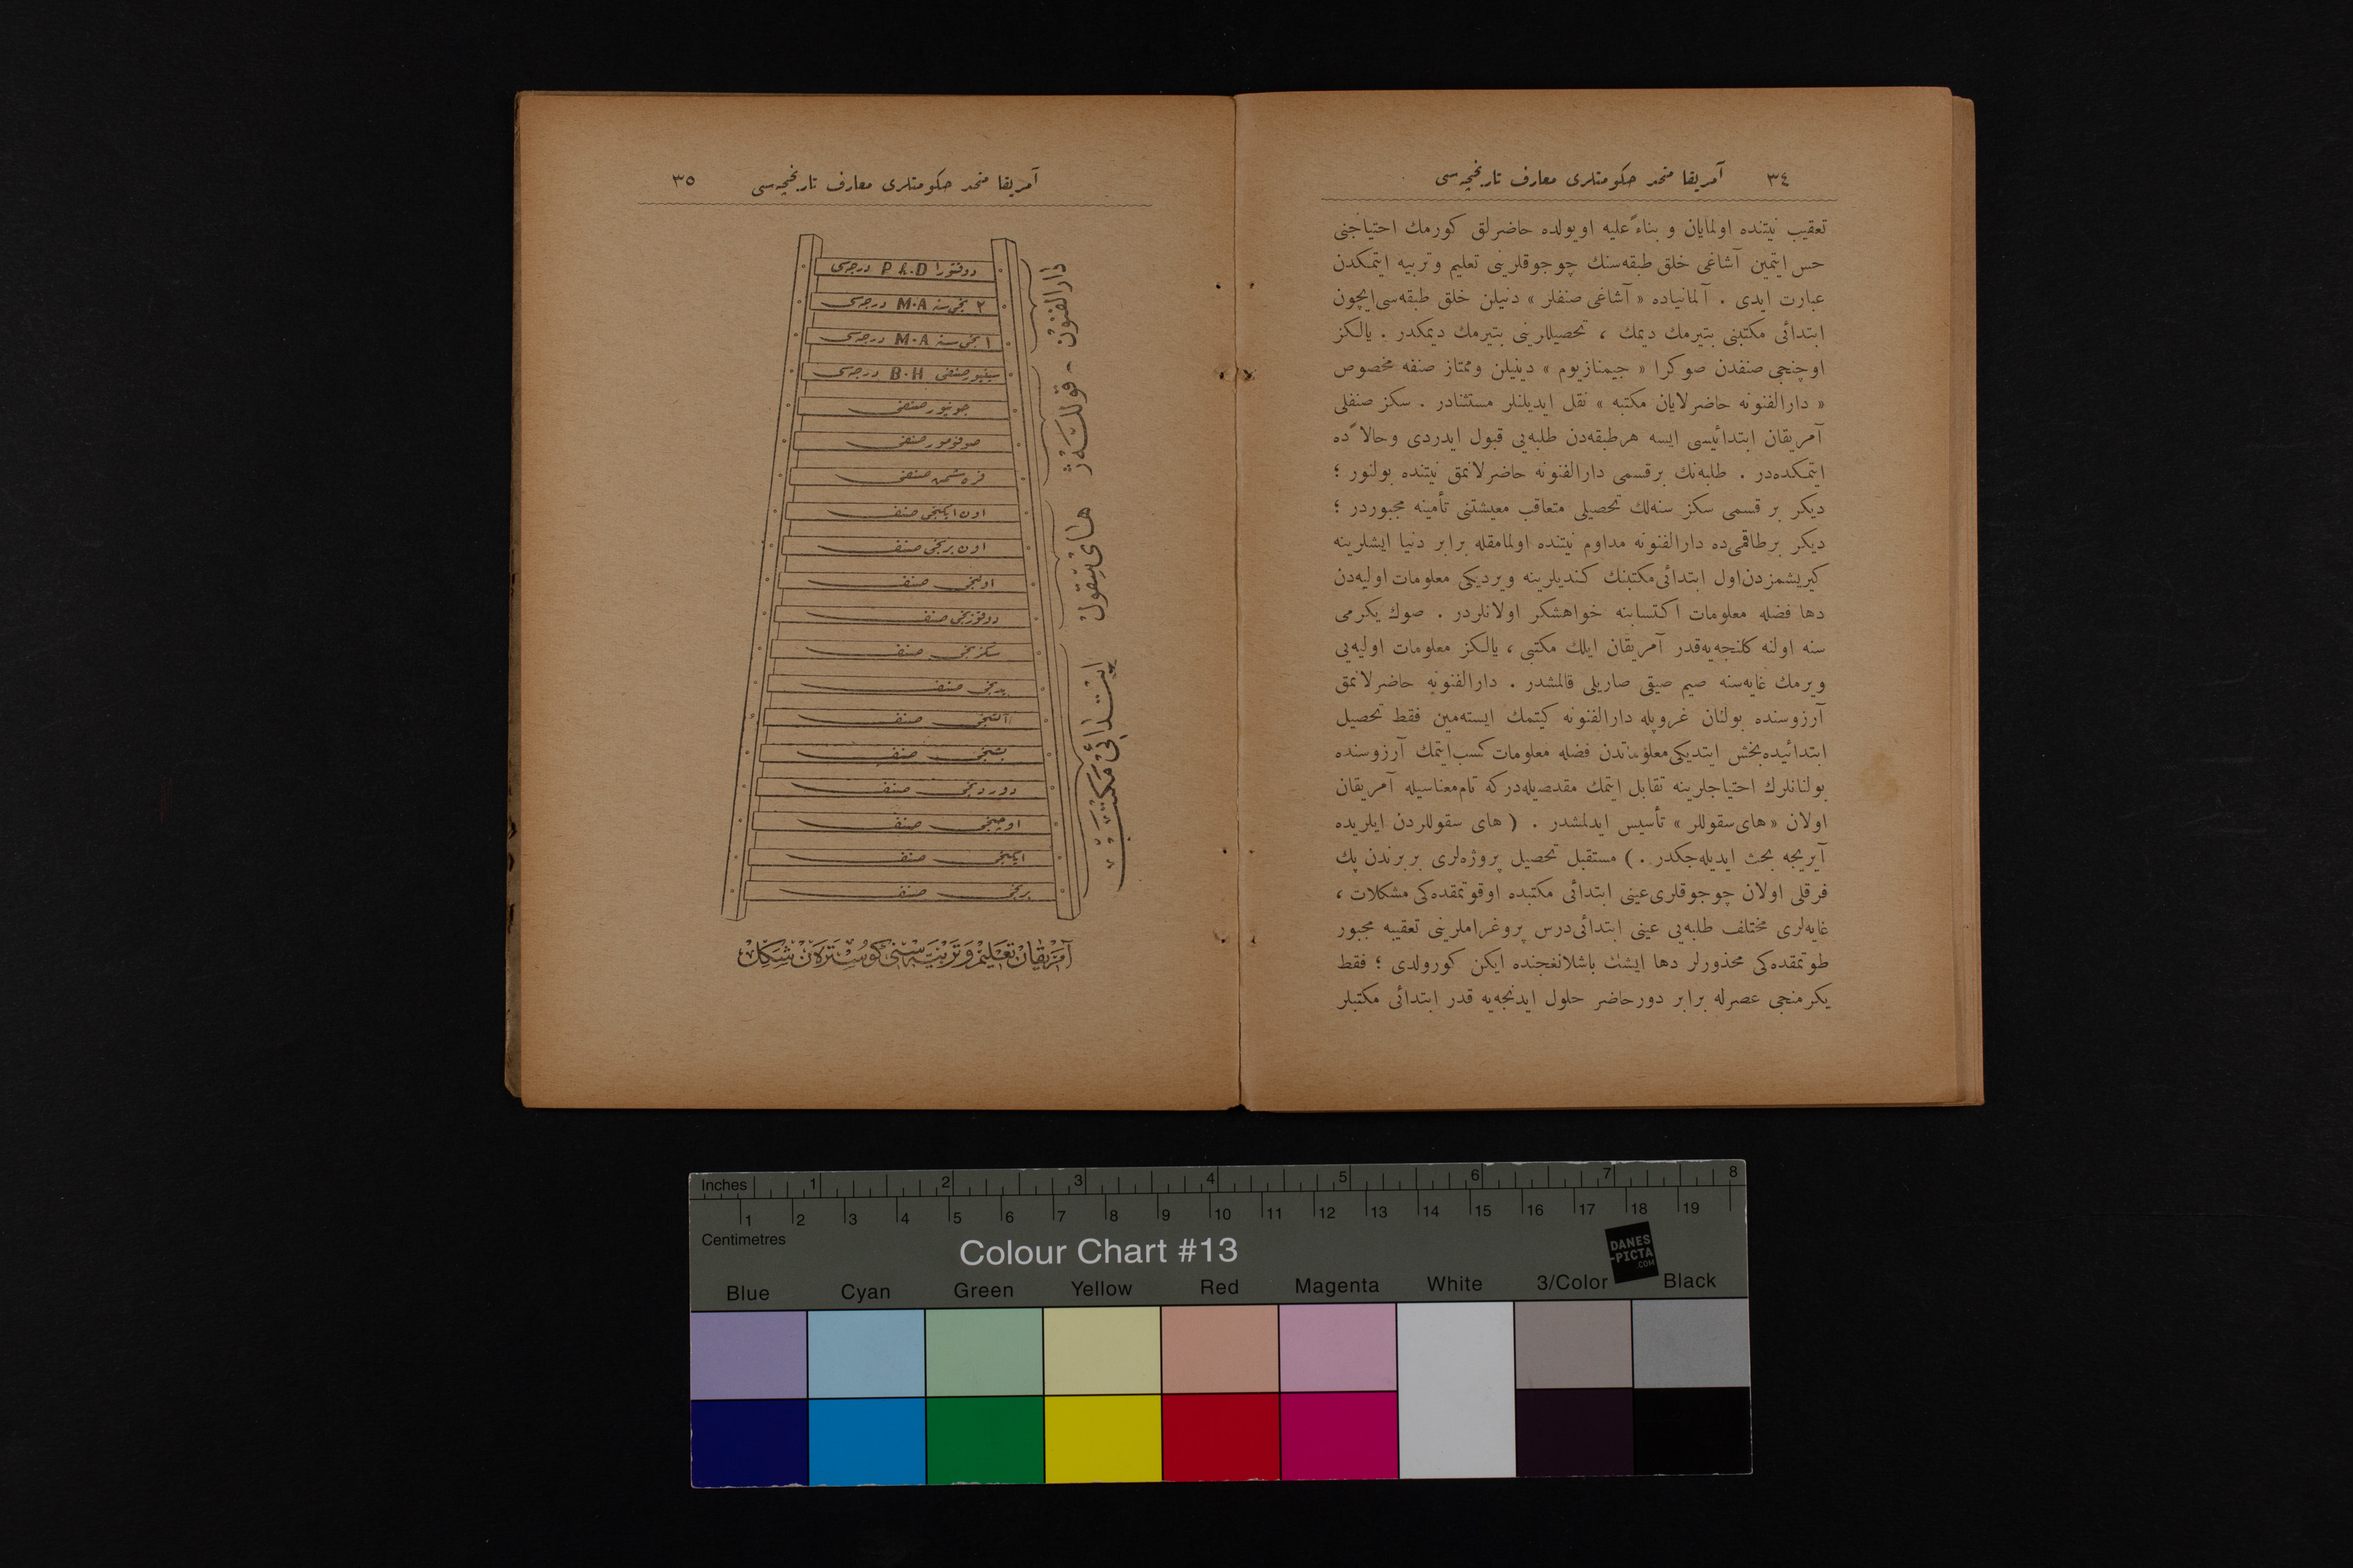 ٣٤ آمریقا متحد حکومتلری معارف تاریخچه‌سی
تعقیب نیتنده اولمایان و بناءً علیه اویولده حاضرلق کورمك احتیاجنی
حس ایتمین آشاغی خلق طبقه‌سنك چوجوقلرینی تعلیم و تربیه ایتمکدن
عبارت ایدی . آلمانیاده « آشاغی صنفلر » دنیلن خلق طبقه‌سی ایچون
ابتدائی مکتبنی بتیرمك دیمك ، تحصیللرینی بتیرمك دیمکدر . یالکز
اوچنجی صنفدن صوکرا « جیمنازیوم » دینیلن و ممتاز صنفه مخصوص
« دارالفنونه حاضرلایان مکتبه » نقل ایدیلنلر مستثنادر . سکز صنفلی
آمریقان ابتدائیسی ایسه هر طبقه‌دن طلبه‌یی قبول ایدردی و حالاً ده
ایتمکده‌در . طلبه‌نك بر قسمی دارالفنونه حاضرلانمق نیتنده بولنور ؛
دیکر بر قسمی سکز سنه‌لك تحصیلی متعاقب معیشتنی تأمینه مجبوردر ؛
دیکر بر طاقمی‌ده دارالفنونه مداوم نیتنده اولمامقله برابر دنیا ایشلرینه
کیریشمزدن اول ابتدائی مکتبنك کندیلرینه ویردیکی معلومات اولیه‌دن
دها فضله معلومات اکتسابنه خواهشکر اولانلردر . صوك یکرمی
سنه اولنه کلنجه‌یه‌قدر آمریقان ایلك مکتبی ، یالکز معلومات اولیه‌یی
ویرمك غایه‌سنه صیم صیقی صاریلی قالمشدر . دارالفنونه حاضرلانمق
آرزوسنده بولنان غروپله دارالفنونه کیتمك ایسته‌مین فقط تحصیل
ابتدائیده بخش ایتدیکی معلوماتدن فضله معلومات کسب ایتمك آرزوسنده
بولنانلرك احتیاجلرینه تقابل ایتمك مقصدیله‌درکه تام معناسیله آمریقان
اولان « های سقوللر » تأسیس ایدلمشدر . ( های سقوللردن ایلریده
آیریجه بحث ایدیله‌جکدر . ) مستقبل تحصیل پروژه‌لری بربرندن پك
فرقلی اولان چوجوقلری عینی ابتدائی مکتبده اوقوتمقده‌کی مشکلات ،
غایه‌لری مختلف طلبه‌یی عینی ابتدائی درس پروغراملرینی تعقیبه مجبور
طوتمقده‌کی محذورلر دها ایشك باشلانغجنده ایکن کورولدی ؛ فقط
یکرمنجی عصرله برابر دور حاضر حلول ایدنجه‌یه قدر ابتدائی مکتبلر
آمریقا متحد حکومتلری معارف تاریخچه‌سی ٣٥
دارالفنون - قوللەژ
های سقول
ابتدائی مکتب
دوقتورا P h.D درجه‌سی
٢ نجی سنه M.A درجه‌سی
١ نجی سنه M.A درجه‌سی
سینیور صنفی B.H درجه‌سی
جونیور صنفی
صوفومور صنفی
فره‌شمن صنفی
اون ایکنجی صنف
اون برنجی صنف
اوننجی صنف
دوقوزنجی صنف
سکزنجی صنف
یدنجی صنف
آلتنجی صنف
بشنجی صنف
دوردنجی صنف
اوچنجی صنف
ایکنجی صنف
برنجی صنف
آمریقان تعلیم و تربیه‌سنی کوسترەن شکل
Inches 1 2 3 4 5 6 7 8
1 2 3 4 5 6 7 8 9 10 11 12 13 14 15 16 17 18 19
Centimetres
Colour Chart #13
DANES
-PICTA
.COM
Blue Cyan Green Yellow Red Magenta White 3/Color Black